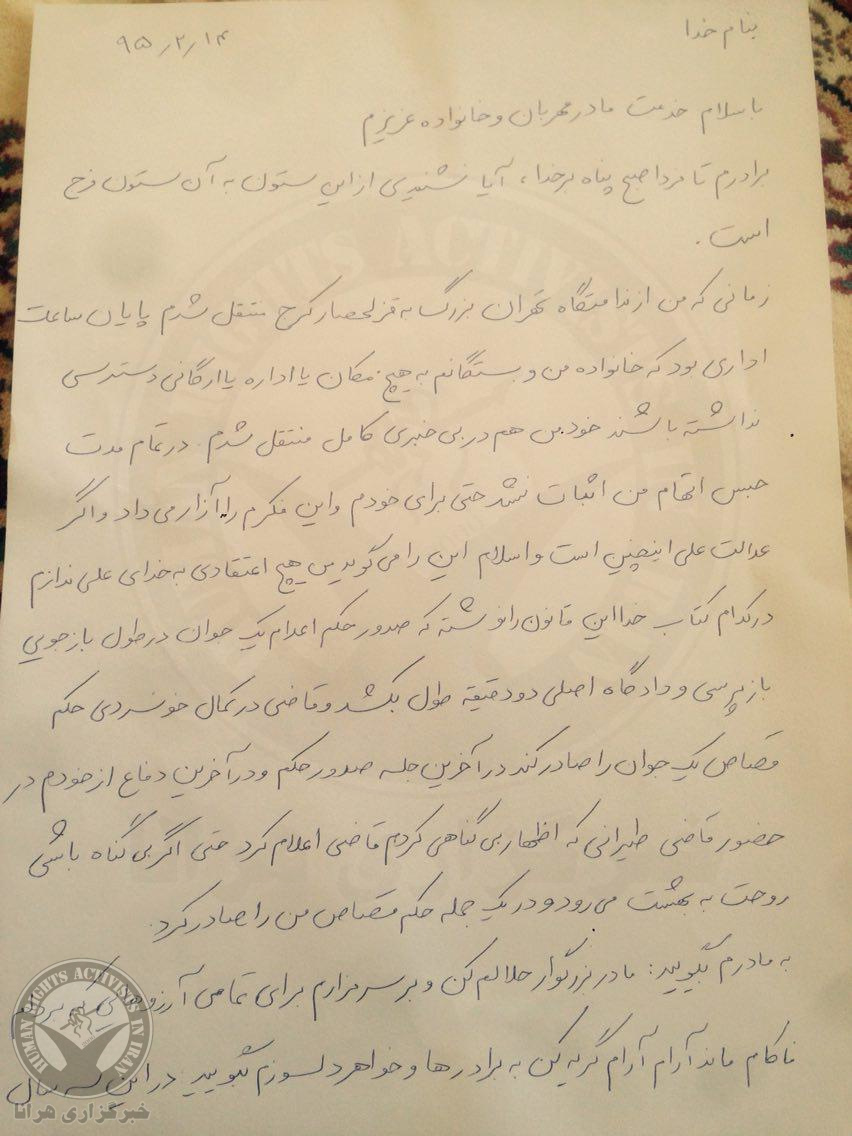 بنام خدا
۹۵/۲/۱۴
با سلام خدمت مادر مهربان و خانواده عزیزم
برادرم تا فردا صبح پناه بر خدا، آیا نشنیدی از این ستون به آن ستون فرج
است.
زمانی که من از ندامتگاه تهران بزرگ به قزلحصار کرج منتقل شدم پایان ساعت
اداری بود که خانواده من و بستگانم به هیچ مکان یا اداره یا ارگانی دسترسی
نداشته باشند خود من هم در بی خبری کامل منتقل شدم. در تمام مدت
حبس اتهام من اثبات نشد حتی برای خودم و این فکرم را آزار می داد و اگر
عدالت علی اینچنین است و اسلام این را می گوید من هیچ اعتقادی به خدای علی ندارم
در کدام کتاب خدا این قانون را نوشته که صدور حکم اعدام یک جوان در طول بازجویی
بازپرسی و دادگاه اصلی دو دقیقه طول بکشد و قاضی در کمال خونسردی حکم
قصاص یک جوان را صادر کند در آخرین جلسه صدور حکم و در آخرین دفاع از خودم در
حضور قاضی طیرانی که اظهار بی گناهی کردم قاضی اعلام کرد حتی اگر بی گناه باشی
روحت به بهشت می رود و در یک جمله حکم قصاص من را صادر کرد.
به مادرم بگویید: مادر بزرگوار حلالم کن و بر سر مزارم برای تمامی آرزوهایی که
ناکام ماند آرام آرام گریه کن به برادرها و خواهر دلسوزم بگویید در این سه سال
HUMAN RIGHTS ACTIVISTS IN IRAN
خبرگزاری هرانا